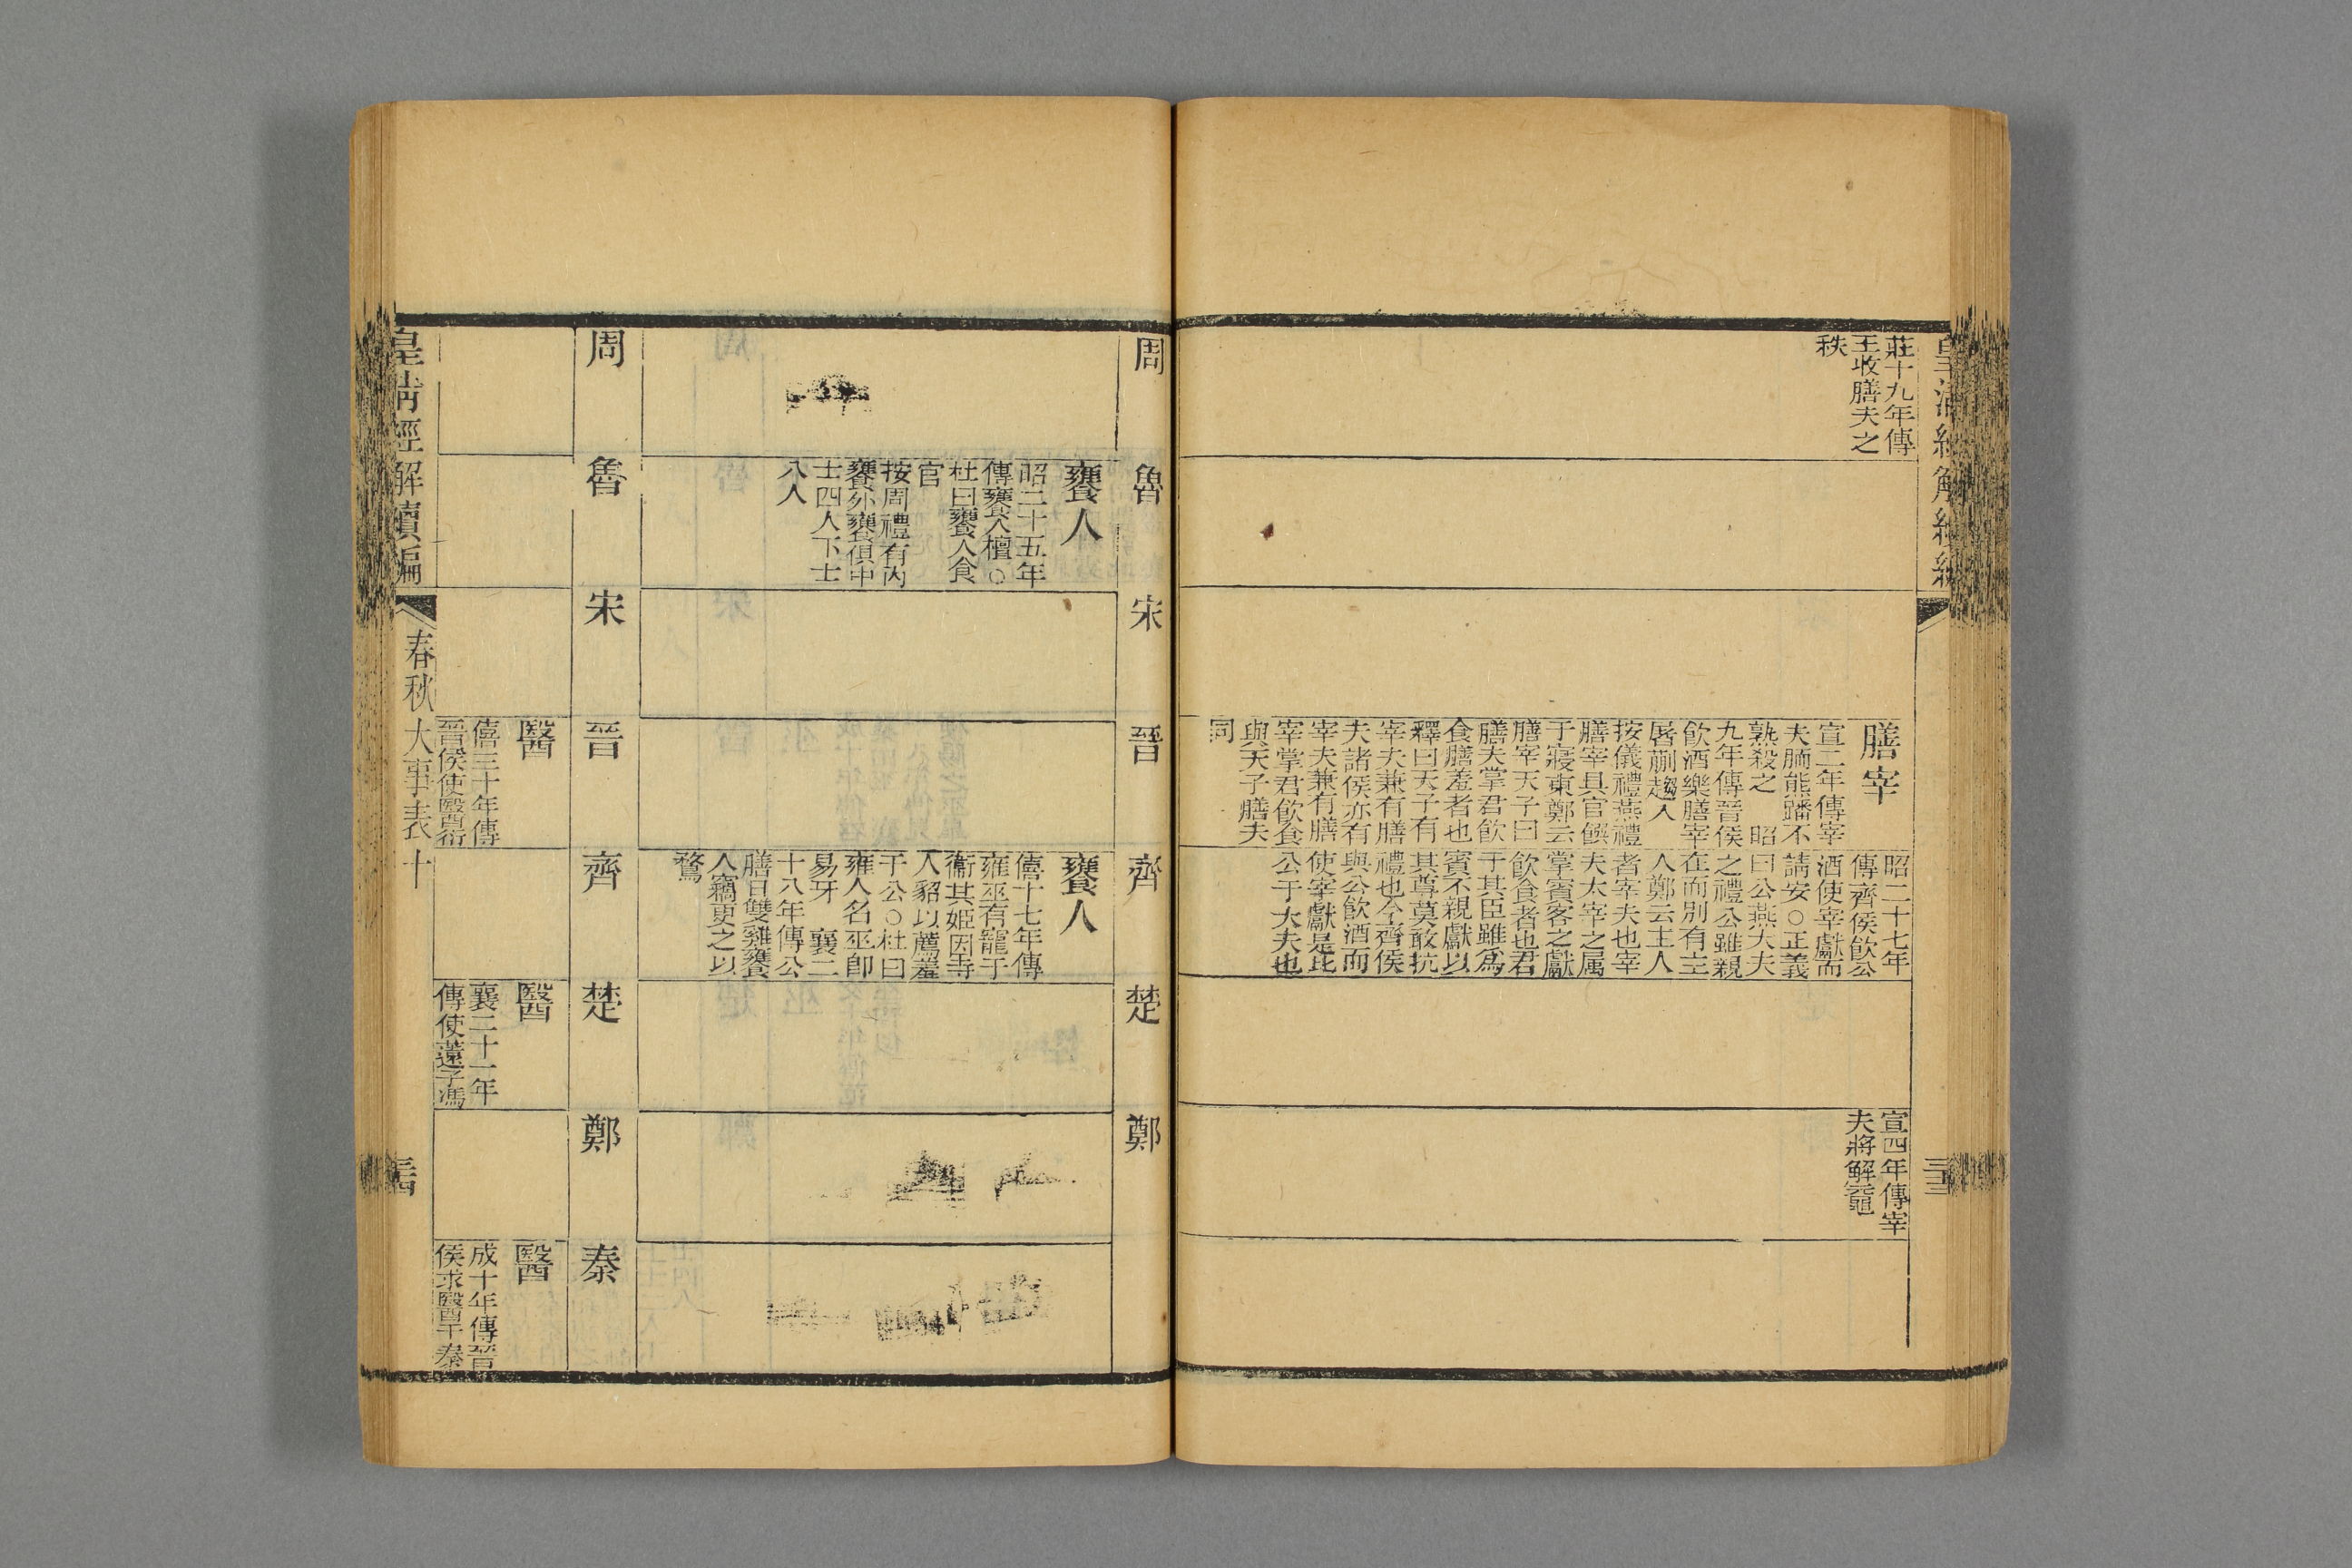 皇清經解續編
莊十九年傳
王收膳夫之
秩
膳宰
宣二年傳宰
夫胹熊蹯不
熟殺之 昭
九年傳晉侯
飲酒樂膳宰
屠蒯趨入
按儀禮燕禮
膳宰具官饌
于寢東鄭云
膳宰天子曰
膳夫掌君飲
食膳羞者也
釋曰天子有
宰夫兼有膳
夫諸侯亦有
宰夫兼有膳
宰掌君飲食
與天子膳夫
同
昭二十七年
傳齊侯飲公
酒使宰獻而
請安○正義
曰公燕大夫
之禮公雖親
在而別有主
人鄭云主人
者宰夫也宰
夫太宰之屬
掌賓客之獻
飲食者也君
于其臣雖為
賓不親獻以
其尊莫敢抗
禮也今齊侯
與公飲酒而
使宰獻是比
公于大夫也
宣四年傳宰
夫將解黿
周
魯
宋
晉
齊
楚
鄭
饔人
昭二十五年
傳饔人檀○
杜曰饔人食
官
按周禮有內
饔外饔俱中
士四人下士
八人
饔人
僖十七年傳
雍巫有寵于
衞共姬因寺
人貂以薦羞
于公○杜曰
雍人名巫即
易牙 襄二
十八年傳公
膳日雙雞饔
人竊更之以
鶩
周
魯
宋
晉
齊
楚
鄭
秦
醫
僖三十年傳
晉侯使醫衍
醫
襄二十一年
傳使薳子馮
醫
成十年傳晉
侯求醫于秦
皇清經解續編
春秋大事表十